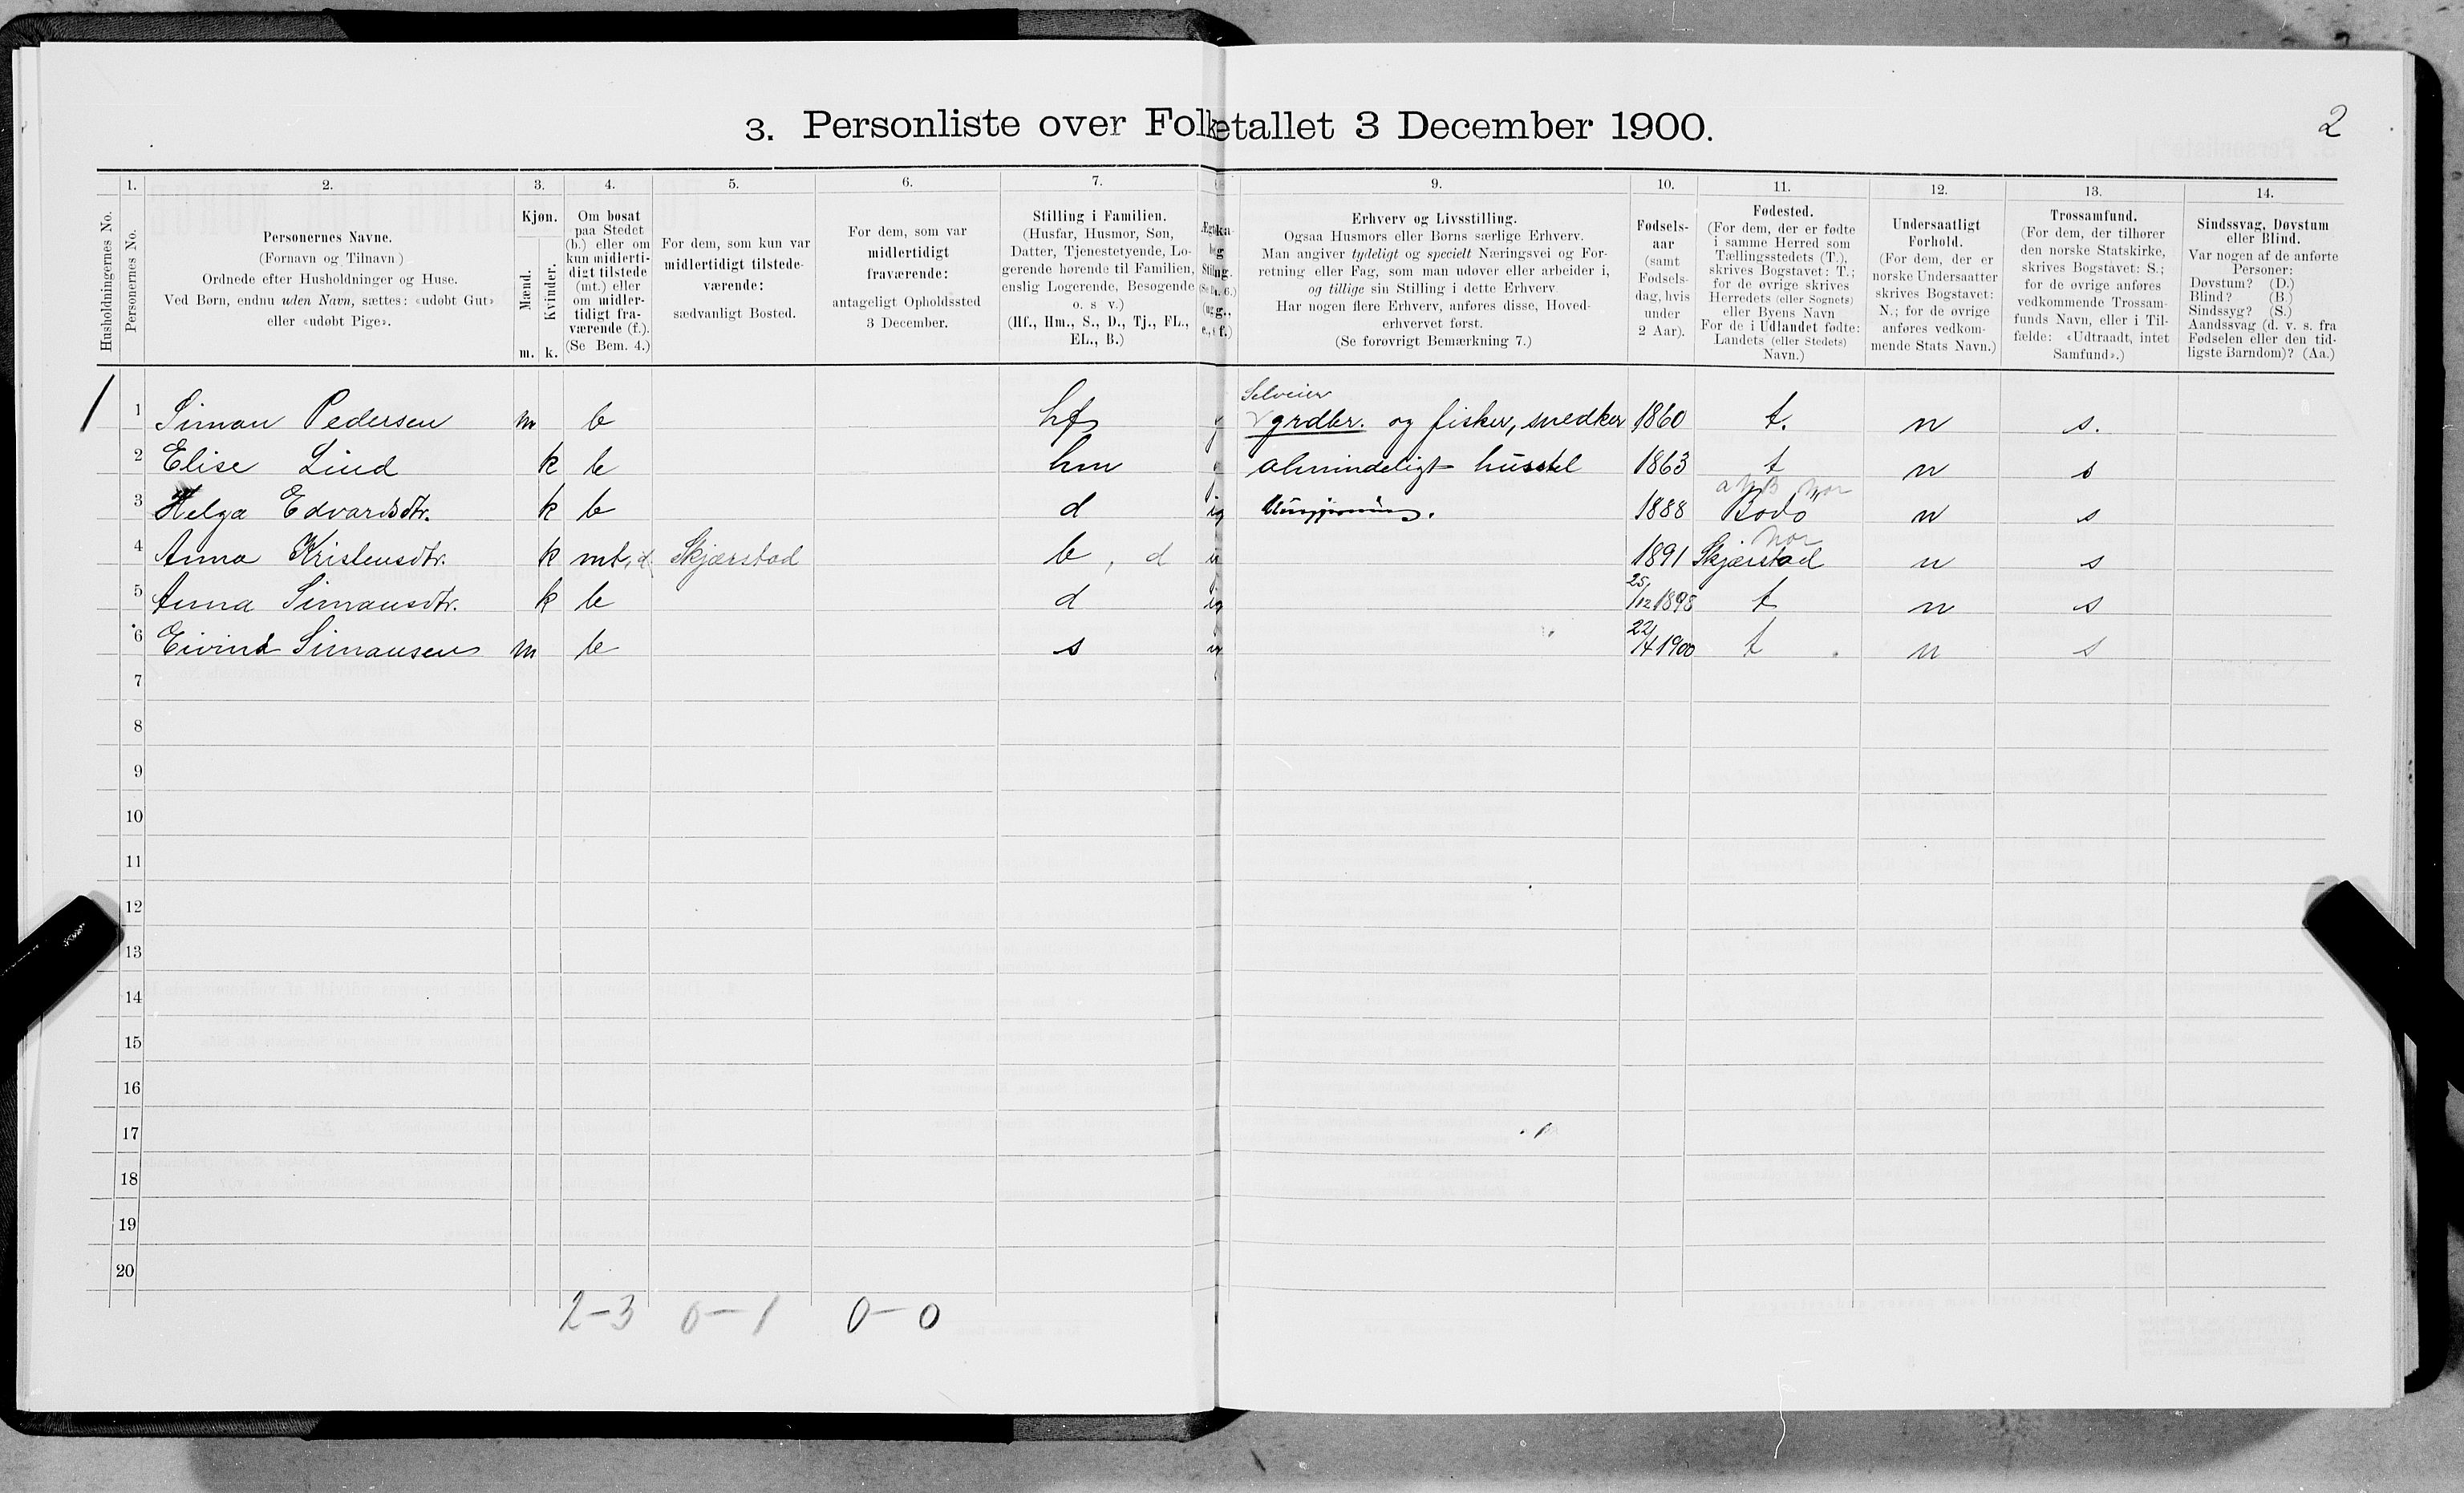 3. Personliste over Folketallet 3 December 1900.
2
1.
2.
3.
4.
5.
6.
7.
9.
10.
11.
12.
13.
14.
Husholdningernes No.
Personernes No.
Personernes Navne.
(Fornavn og Tilnavn)
Ordnede efter Husholdninger og Huse.
Ved Børn, endnu uden Navn, sættes: «udøbt Gut»
eller «udøbt Pige».
Kjøn.
Mænd.
Kvinder.
m. k.
Om bosat
paa Stedet
(b.) eller om
kun midlerti-
digt tilstede
(mt.) eller
om midler-
tidigt fra-
værende (f.).
(Se Bem. 4.)
For dem, som kun var
midlertidigt tilstede-
værende:
sædvanligt Bosted.
For dem, som var
midlertidigt
fraværende:
antageligt Opholdssted
3 December.
Stilling i Familien.
(Husfar, Husmor, Søn,
Datter, Tjenestetyende, Lo-
gerende hørende til Familien,
enslig Logerende, Besøgende
o. s. v.)
(Hf., Hm., S., D., Tj., FL.,
EL., B.)
Erhverv og Livsstilling.
Ogsaa Husmors eller Børns særlige Erhverv.
Man angiver tydeligt og specielt Næringsvei og For-
retning eller Fag, som man udøver eller arbeider i,
og tillige sin Stilling i dette Erhverv.
Har nogen flere Erhverv, anføres disse, Hoved-
erhvervet først.
(Se forøvrigt Bemærkning 7.)
Fødsels-
aar
(samt
Fødsels-
dag, hvis
under
2 Aar).
Fødested.
(For dem, der er fødte
i samme Herred som
Tællingsstedets (T.),
skrives Bogstavet: T.;
for de øvrige skrives
Herredets (eller Sognets)
eller Byens Navn
For de i Udlandet fødte:
Landets (eller Stedets)
Navn.)
Undersaatligt
Forhold.
(For dem, der er
norske Undersaatter
skrives Bogstavet:
N.; for de øvrige
anføres vedkom-
mende Stats Navn.)
Trossamfund.
(For dem, der tilhører
den norske Statskirke,
skrives Bogstavet: S.;
for de øvrige anføres
vedkommende Trossam-
funds Navn, eller i Til-
fælde: «Udtraadt, intet
Samfund».)
Sindssvag, Døvstum
eller Blind.
Var nogen af de anførte
Personer:
Døvstum? (D.)
Blind? (B.)
Sindssyg? (S.)
Aandssvag (d. v. s. fra
Fødselen eller den tid-
ligste Barndom)? (Aa.)
Selveier
1 1 Siman Pedersen m b hf g grdbr. og fisker, snedker 1860 t. n s.
2 Elise Lind k b hm g almindeligt husstel 1863 t n s
3 Helga Edvardsdtr. k b d ug 1888 Bodø n s
nor
4 Anna Kristensdtr. k mt, d Skjærstad b , d 1891 Skjærstad n s
5 Anna Simansdtr. k b d ug 25/12 1898 t n s
6 Eivind Simansen m b s 22/4 1900 t n s
7
8
9
10
11
12
13
14
15
16
17
18
19
20
2-3 0-1 0-0